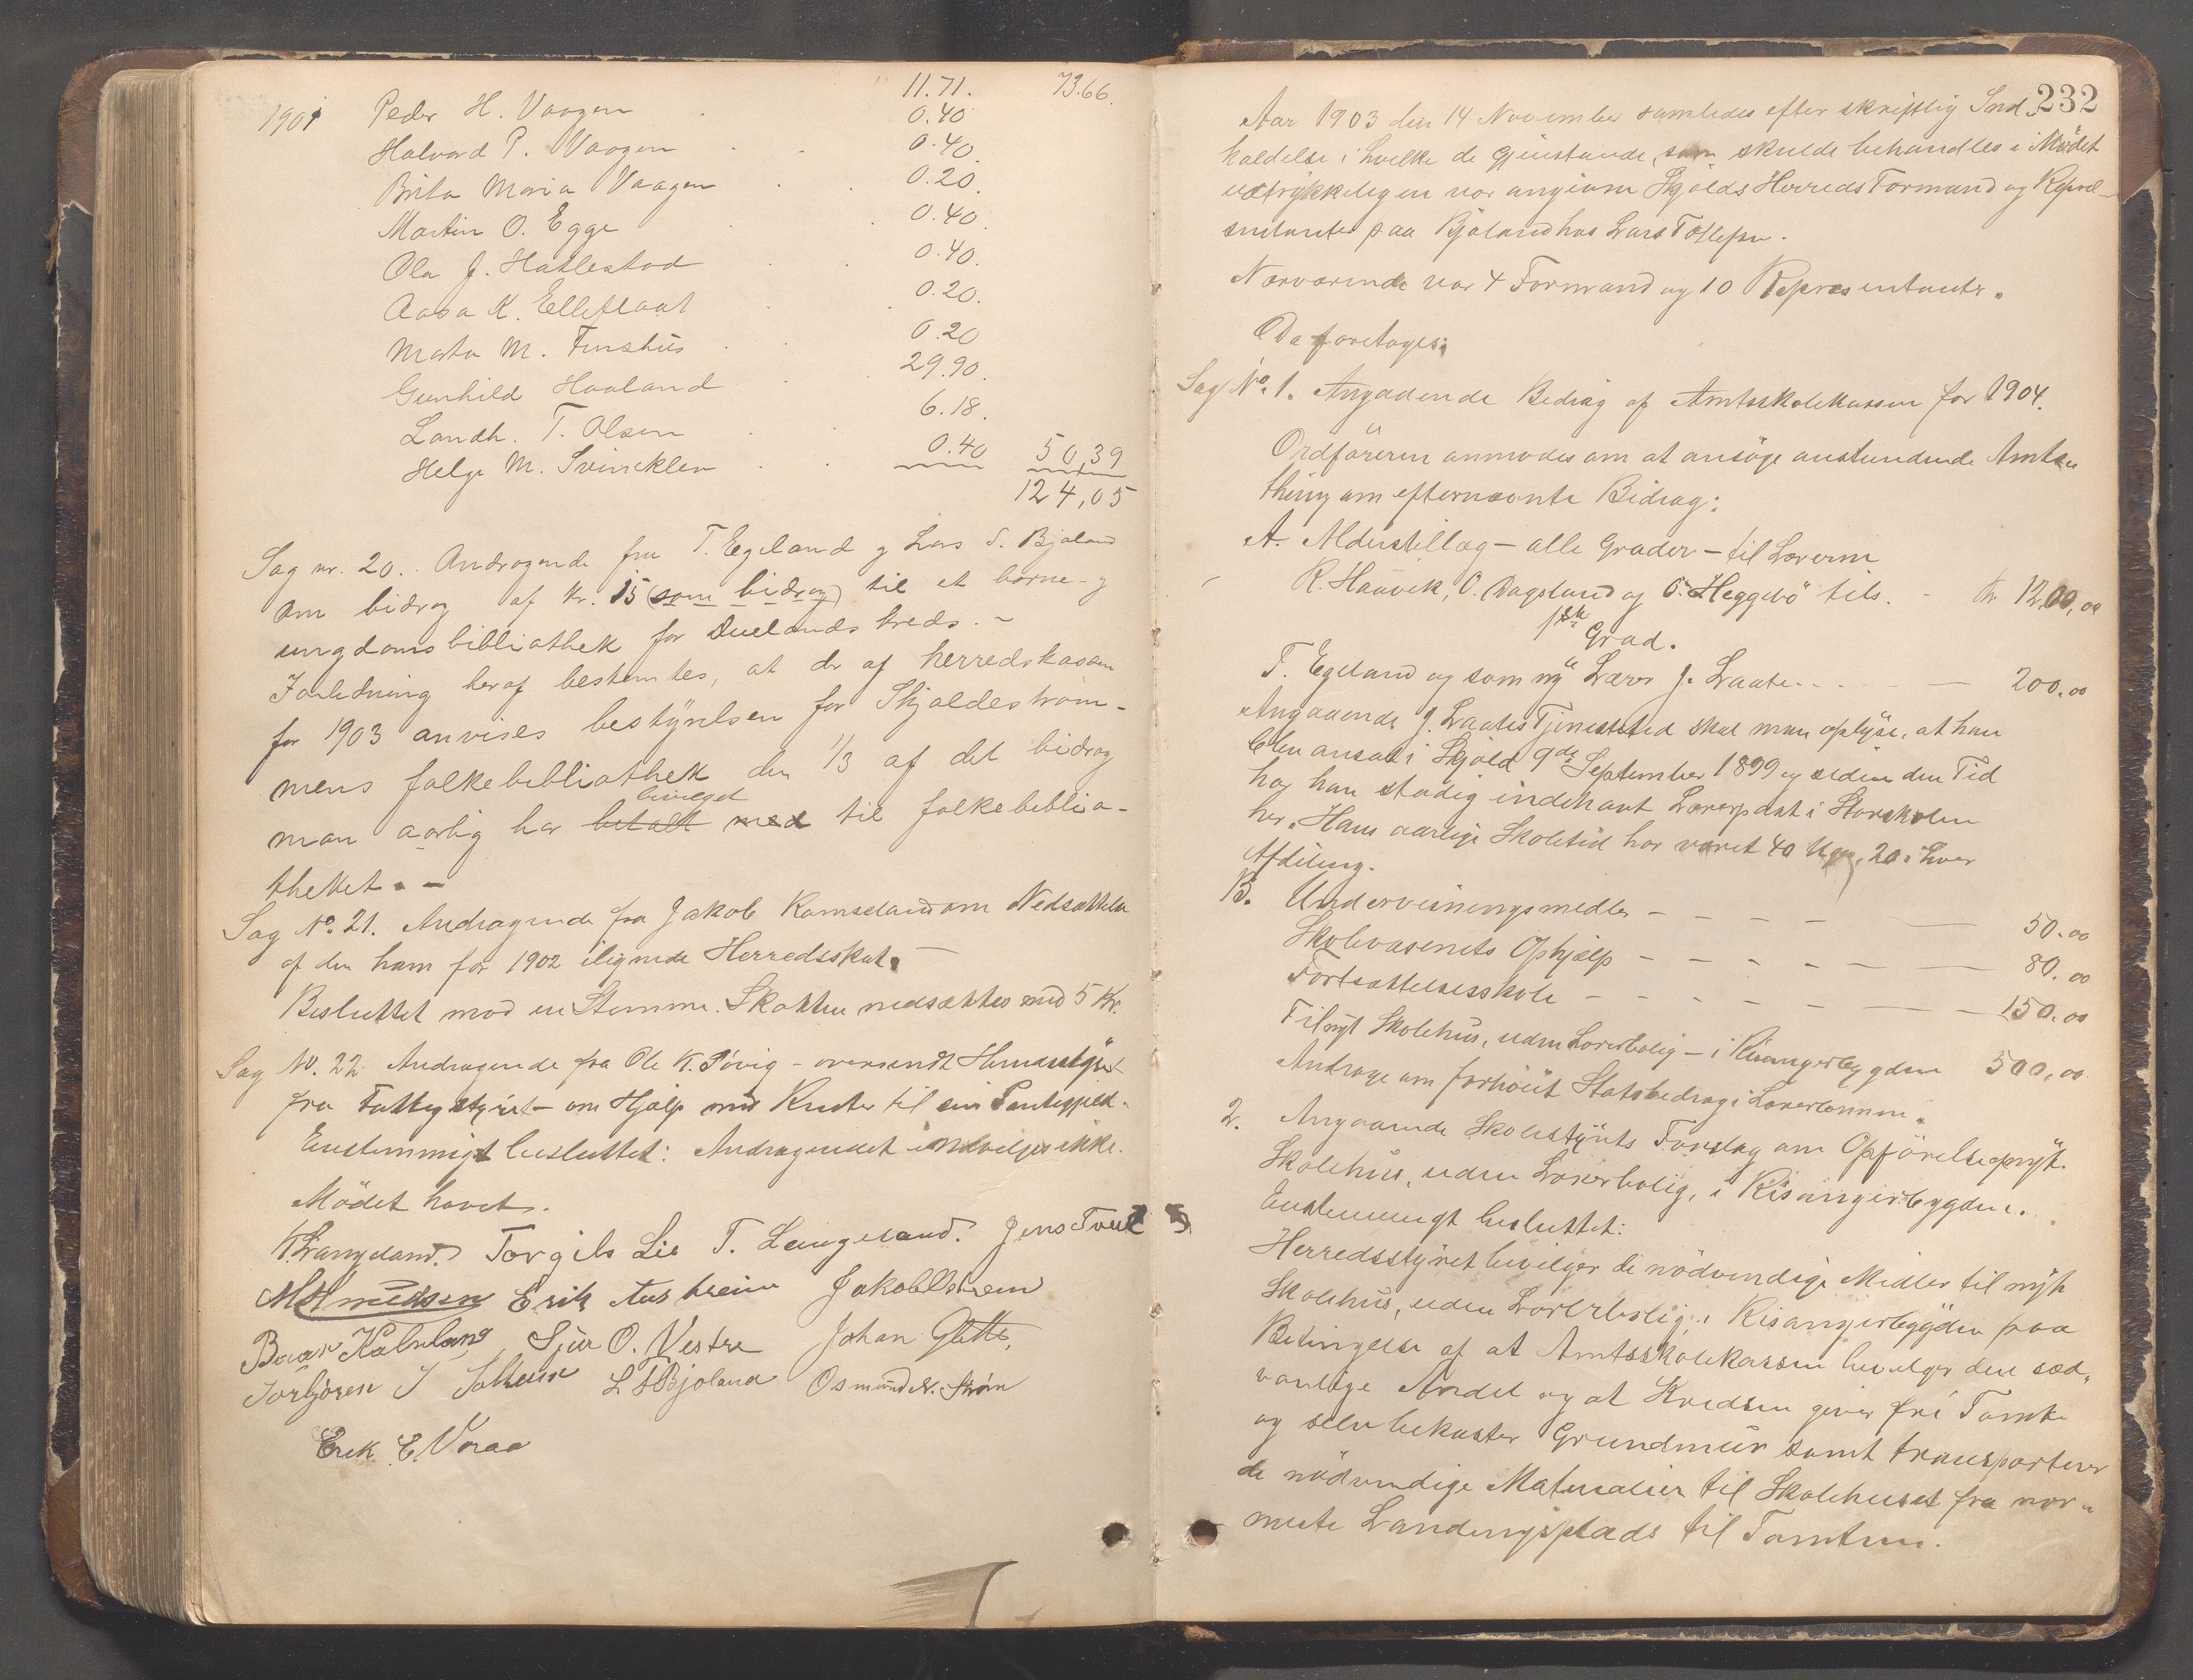 11.71. 73.66.
1901 Peder H. Vaagen 0.40
Halvard P. Vaagen 0.40.
Brita Maria Vaagen 0.20.
Martin O. Egge 0.40.
Ola J. Hatlestad 0.40.
Aasa K. Elleflaat 0.20.
Marta M. Finshus 0.20
Gunhild Haaland 29.90.
Landh. T. Olsen 6.18.
Helge M. Svinsklen 0.40 50,39
124,05
Sag nr. 20. Andragende fra T. Egeland g Lars S. Bjoland
om bidrag af kr. 15 (som bidrag) til et barne- g
ungdomsbibliothek for Duelands kreds. -
I anledning heraf bestemtes, at der af herredskassen
for 1903 anvises bestyrelsen for Skjoldestrøm-
mens folkebibliothek den 1/3 af det bidrag
bevilget
man aarlig har betalt med til folkebiblio-
theket. -
Sag No. 21. Andragende fra Jakob Ramsland om Nedsættelse
af den ham for 1902 ilignede Herredsskat. -
Besluttet mod en Stemme. Skatten nedsættes med 5 Kr.
Sag No. 22. Andragende fra Ole K. Søvig - oversendt Herredsstyret
fra Fattigstyret - om Hjælp med Renter til sin Pantegjeld.
Enstemmigt besluttet: Andragendet indvilges ikke.
Mødet hævet.
K. Langeland. Torgils Lie T. Langeland. Jens Tveit
M Amundsen Erik Austreim Jakob Østrem
Baar Kalveland Sjur O. Vestre Johan Glette,
Torbjøren J Solheim L T Bjoland Osmund N. Strøm
Erik E. Voraa
232
Aar 1903 den 14 November samledes efter skriftlig Ind-
kaldelse i hvilke de Gjenstande, som skulde behandles i Mødet
udtrykkeligen var angivne Skjolds Herreds Formænd og Repræ-
sentanter paa Bjoland hos Lars Tollefsen.
Nærværende var 4 Formænd og 10 Repræsentanter.
Da foretoges:
Sag No. 1. Angaaende Bidrag af Amtsskolekassen for 1904.
Ordføreren anmodes om at ansøge anstundende Amts-
thing om efternævnte Bidrag:
A. Alderstillæg - alle Grader - til Lærerne
R. Haavik, O. Dagsland og O. Heggebø tils. - Kr. 1200,00
1ste Grad.
T. Egeland og som ny Lærer J. Laate. - - - 200.00
Angaaende J. Laates Tjenestetid skal man oplyse, at han
blev ansat i Skjold 9de September 1899 og siden den Tid
har han stadig indehavt Lærerpost i Storskolen
her. Hans aarlige Skoletid har været 40 Uger, 20 i hver
Afdeling.
B. Undervisningsmidler - - - - 50.00
Skolevæsenets Ophjælp - - - - - 80.00
Fortsættelsesskole - - - - - 150.00
Til nyt Skolehus, uden Lærerbolig - i Risangerbygden 500,00
Andrage om forhøiet Statsbidrag i Lærerlønnen.
2. Angaaende Skolestyrets Forslag om Opførelse af nyt
Skolehus, uden Lærerbolig, i Risangerbygden.
Enstemmigt besluttet:
Herredsstyret bevilger de nødvendige Midler til nyt
Skolehus, uden Lærerbolig, i Risangerbygden paa
Betingelse af at Amtsskolekassen bevilger den sæd-
vanlige Andel og at Kredsen giver fri Tomt
og selv bekoster Grundmur samt transporterer
de nødvendige Materialier til Skolehuset fra nær-
meste Landingsplads til Tomten.